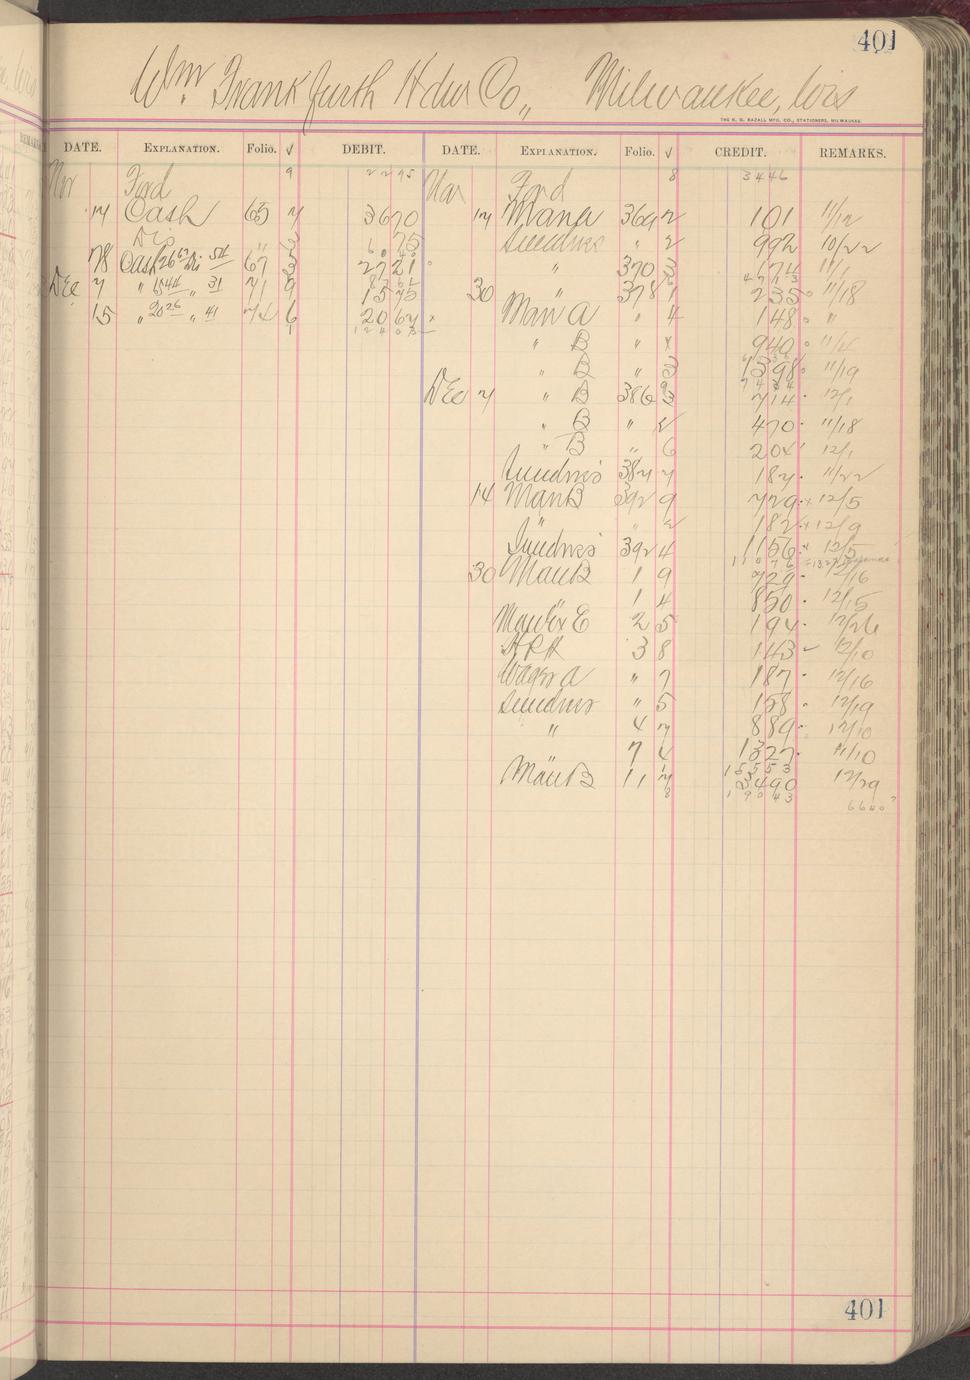 401
Wm. Frankfurth Hdw Co., Milwaukee, Wis
THE H. G. RAZALL MFG. CO., STATIONERS, MILWAUKEE.
DATE. EXPLANATION. Folio. √ DEBIT. DATE. EXPLANATION. Folio. √ CREDIT. REMARKS.
Nov Ford 9 22 95 Nov Ford 8 34 46
14 Cash 65 7 36 70 14 Man a 369 2 1 01 11/12
Dis " 3 75 Sundries " 2 9 92 10/22
28 Cash 26 67 Dis 54 67 3 27 21 " 370 3 6 74 11/1
Dec 7 " 15 44 " 31 71 9 15 75 30 378 1 2 35 11/18
15 " 20 26 " 41 74 6 20 67 Man A " 4 1 48 "
1 124 03 " B " 9 40
" B " 3 13 98 11/19
Dec 7 " B 386 3 7 14 12/1
" B " 2 4 70 11/18
" B " 6 2 04 12/1
Sundries 387 7 1 87 11/22
14 Man B 392 9 7 29 12/5
" " 2 1 82 12/9
Sundries 392 4 11 56 12/5
110 76
30 Man B 1 9 7 29 12/16
" 1 4 8 50 12/15
2 5 1 94 12/26
3 8 1 43 12/10
Wages a " 7 1 87 12/16
Sundries " 5 1 58 12/19
" 4 7 8 89 12/10
7 4 13 27 11/10
155 53
Man B 11 7 34 90 12/29
8 190 43
401